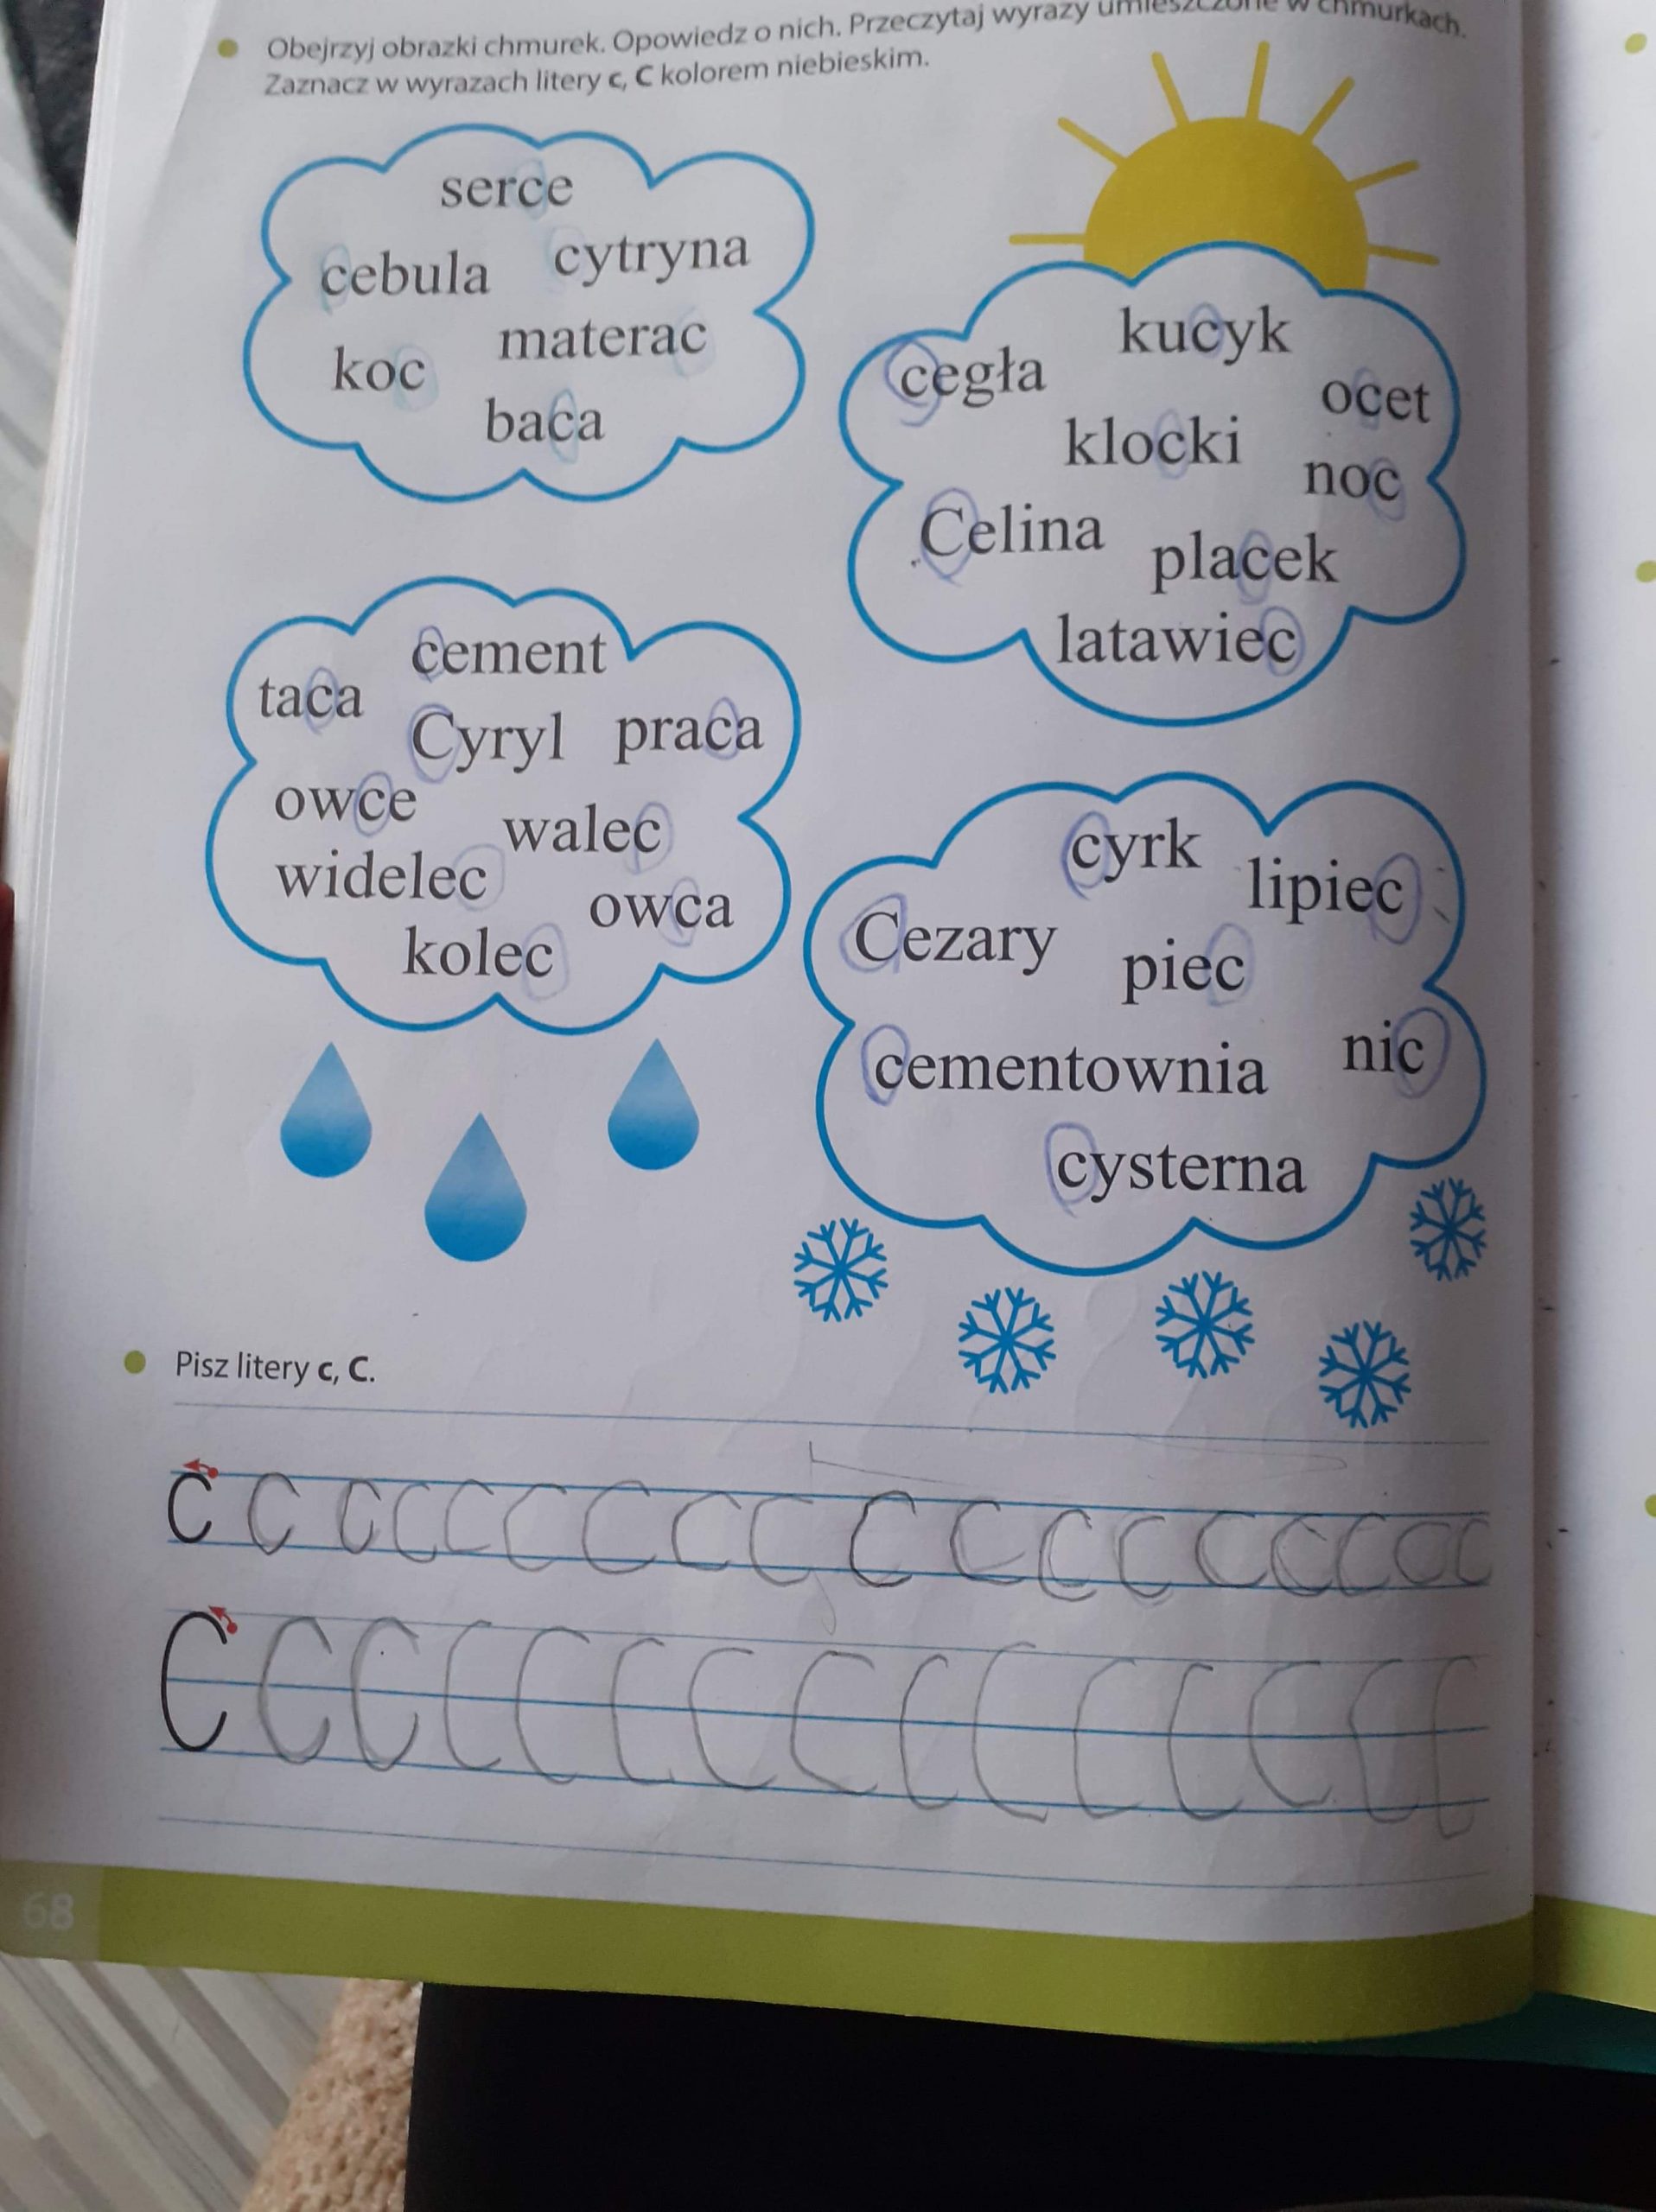 Obejrzyj obrazki chmurek. Opowiedz o nich. Przeczytaj wyrazy umieszczone w chmurkach.
Zaznacz w wyrazach litery c, C kolorem niebieskim.
serce
cebula cytryna
koc materac
baca
kucyk
cegła ocet
klocki noc
Celina placek
latawiec
cement
taca
Cyryl praca
owce walec
widelec owca
kolec
cyrk lipiec
Cezary piec
cementownia nic
cysterna
Pisz litery c, C.
c c c c c c c c c c c c c c c c c c
C C C C C C C C C C C C C C C
68